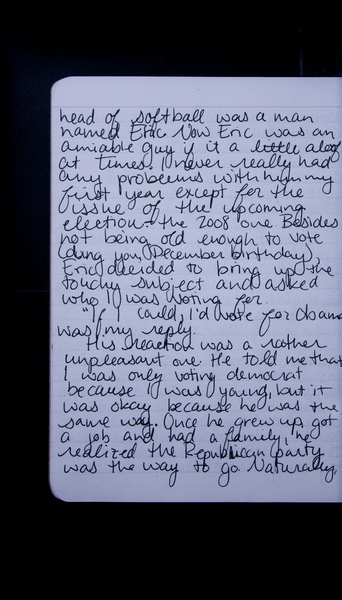 head of softball was a man
named Eric Now Eric was an
amiable guy if it a little aloof
at times. I never really had
any probeems with him my
first year except for the
issue of the upcoming
election- the 2008 one. Besides
not being old enough to vote
(dang you, December birthday),
Eric decided to bring up the
touchy subject and asked
who I was voting for.
"If I could, I'd vote for Obama
was my reply.
His reaction was a rather
unpleasant one. He told me that
I was only voting democrat
because I was young, but it
was okay because he was the
same way. Once he grew up, got
a job and had a family, he
realized the Republican party
was the way to go. Naturally,